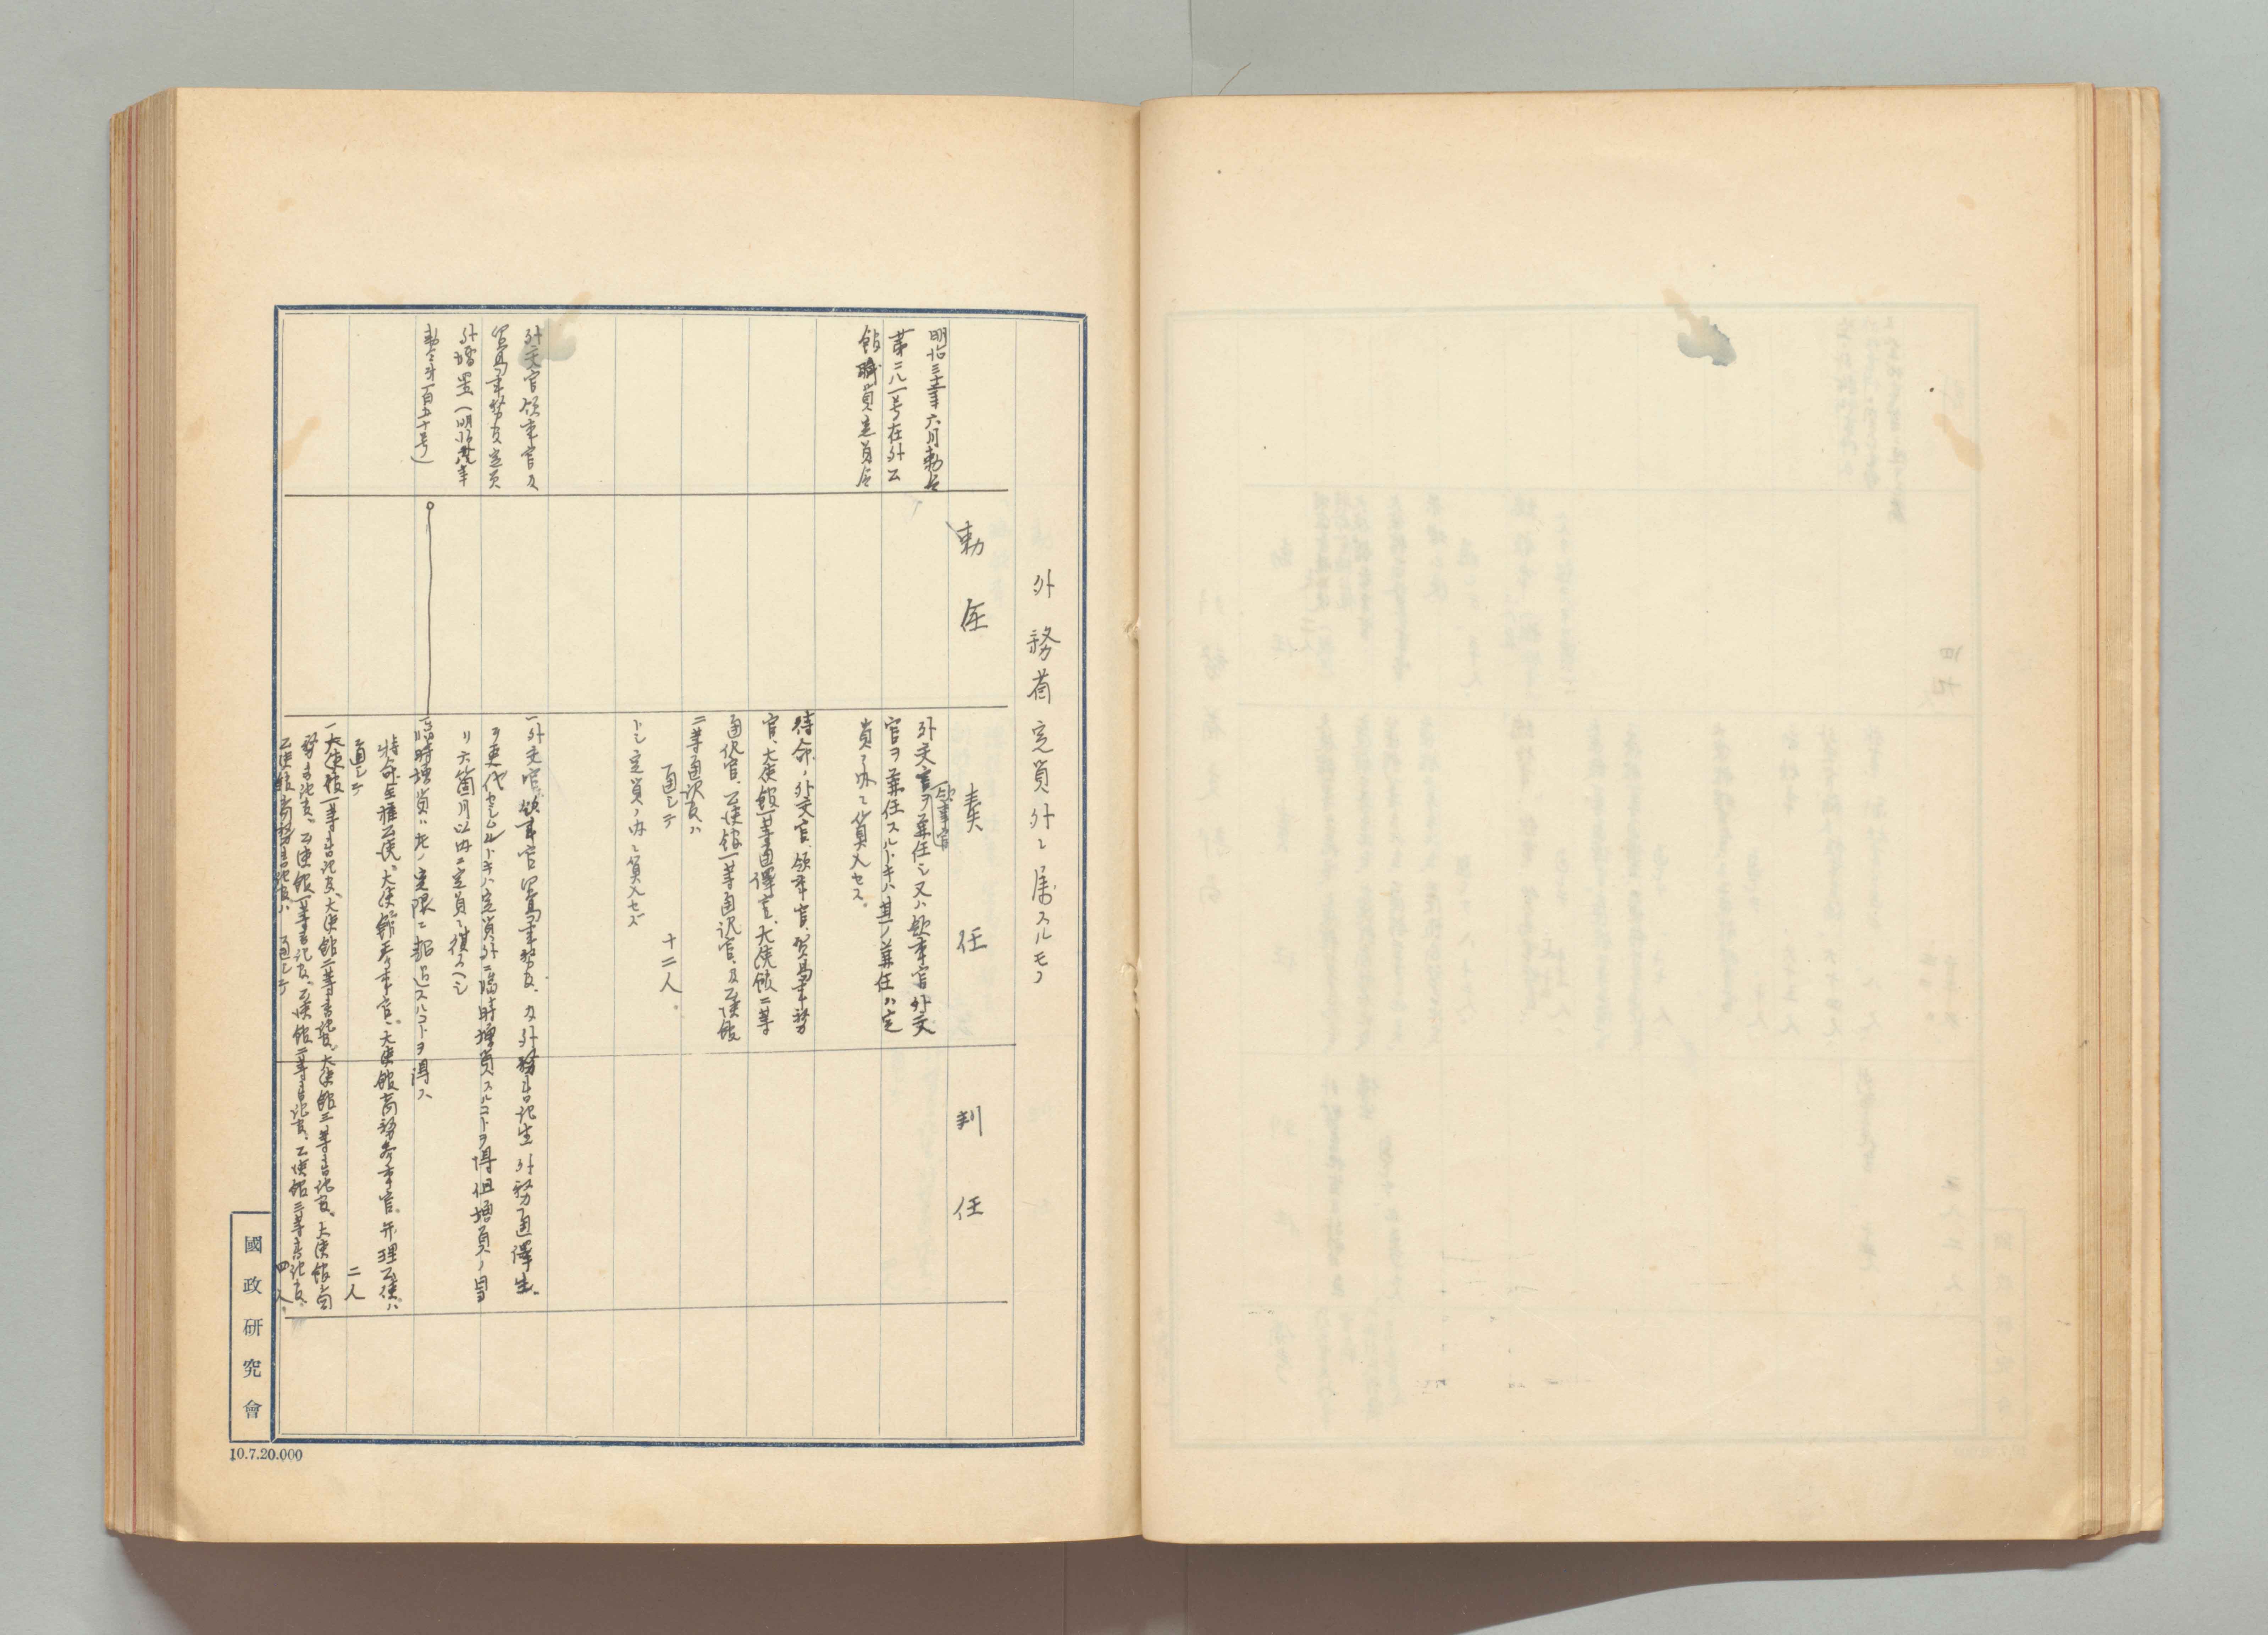 外務省定員外ニ属スルモノ
勅任
奏任
判任
明治三十三年六月勅令
第二八一号在外公
館職員定員令
領事官
外交官ヲ兼任シ又ハ領事官外交
官ヲ兼任スルトキハ其ノ兼任ハ定
員ノ内ニ算入セス。
待命ノ外交官、領事官、貿易事務
官、大使館一等通譯官、大使館二等
通訳官、公使館一等通訳官、及公使館
二等通訳官ハ
通シテ 十二人。
トシ定員ノ内ニ算入セズ
外交官領事官及
貿易事務官定員
外増置
勅令第一百五十号)
一外交官領事官貿易事務官、及外務書記生外務通譯生
ヲ更代セシムルトキハ定員外ニ臨時増員スルコトヲ得但増員ノ
リ六箇月以内ニ定員ニ復スヘシ
一臨時増員ハ左ノ定限ニ超過スルコトヲ得ス
特命全権公使、大使館参事官、大使館商務参事官、弁理公使ハ
通シテ 二人
一大使館一等書記官、大使館二等書記官、大使館三等書記官、大使館商
務書記官、公使館一等書記官、公使館二等書記官、公使館三等書記官、
公使館商務書記官ハ 通シテ 四人。
國政研究會
10.7.20.000